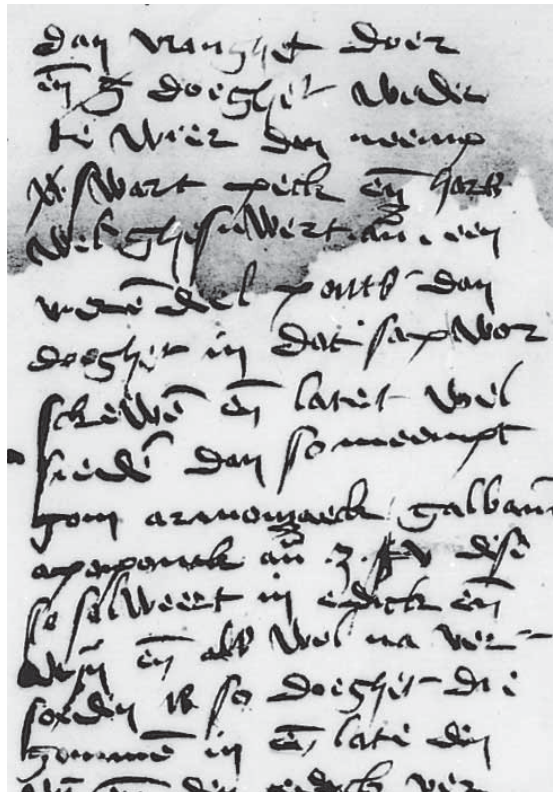 dan vranghet doer
en̄ doeghet weder
te vuer dan neemp
swart peck en̄ harß
wel ghesuvert an̄ . een
vierēdel ponts dan
doeghet in dat sap vor
screvē en̄ latet wel
siedē dan so neempt
gom armoniack galban̄
apoponak an̄ .ʒ. disē
solveert in edick en̄
wijn en̄ als wel na ver
soedē is so doeghet die
gommē in en̄ late din